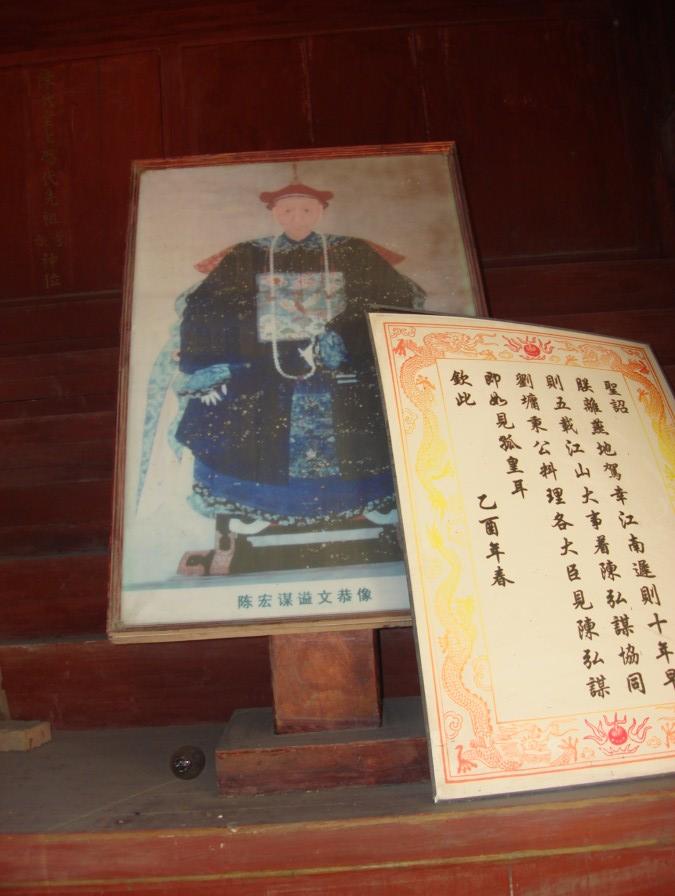 代先祖 神位
陈宏谋谥文恭像
聖詔
朕離燕地駕幸江南遲則十年早
則五載江山大事着陳弘謀協同
劉墉秉公料理各大臣見陳弘謀
即如見孤皇耳
欽此
乙酉年春